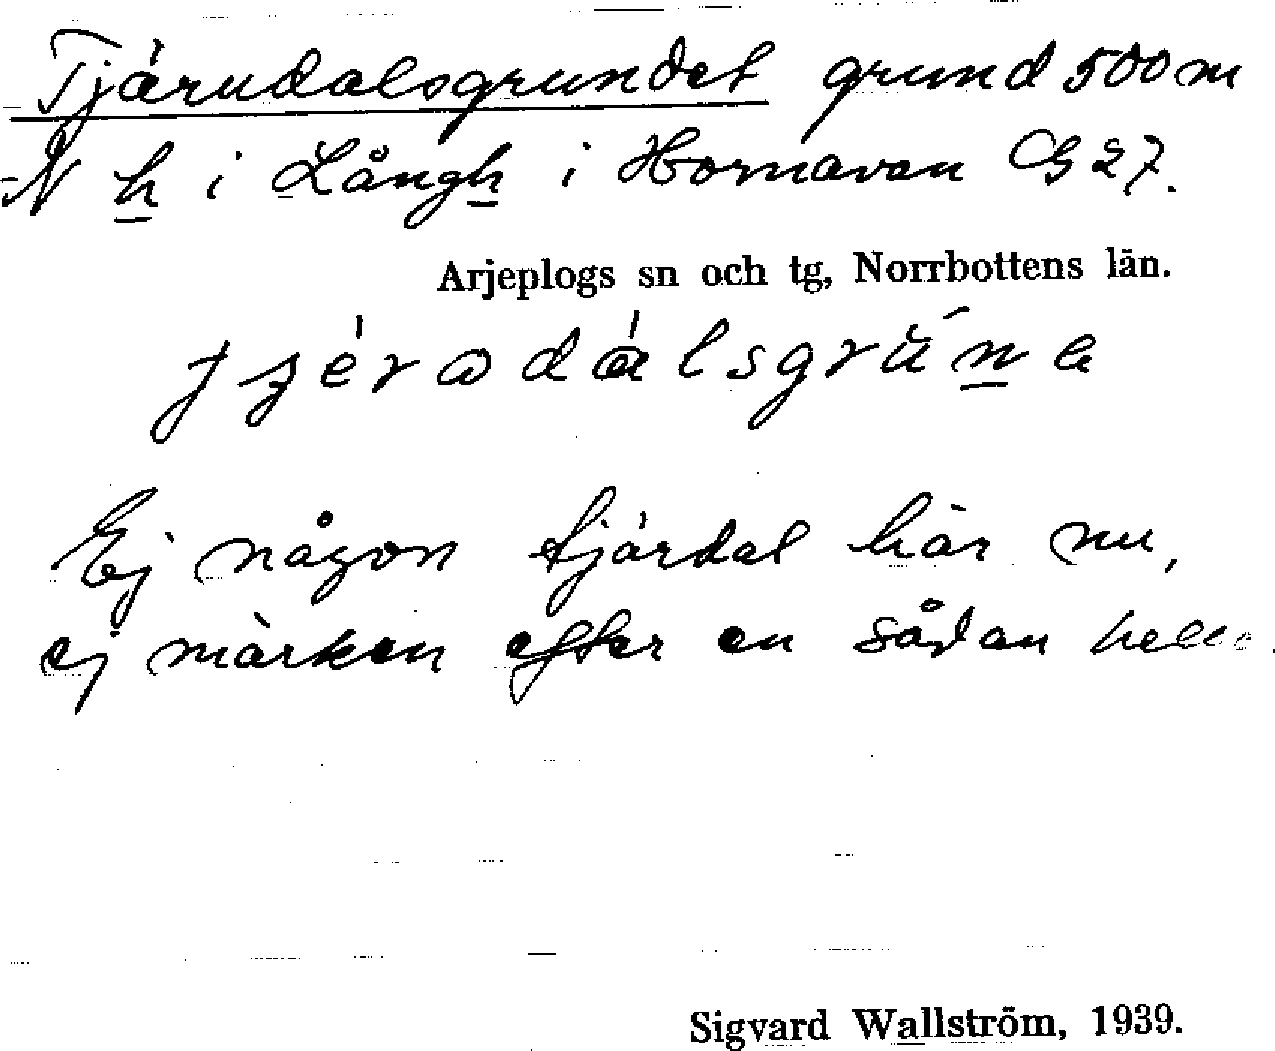 Tjärudalsgrundet grund 500 m
N h i Långh i Hornavan G 27.
Arjeplogs sn och tg, Norrbottens län.
Ej någon tjärdal här nu,
ej märken efter en sådan heller.
Sigvard Wallström, 1939.